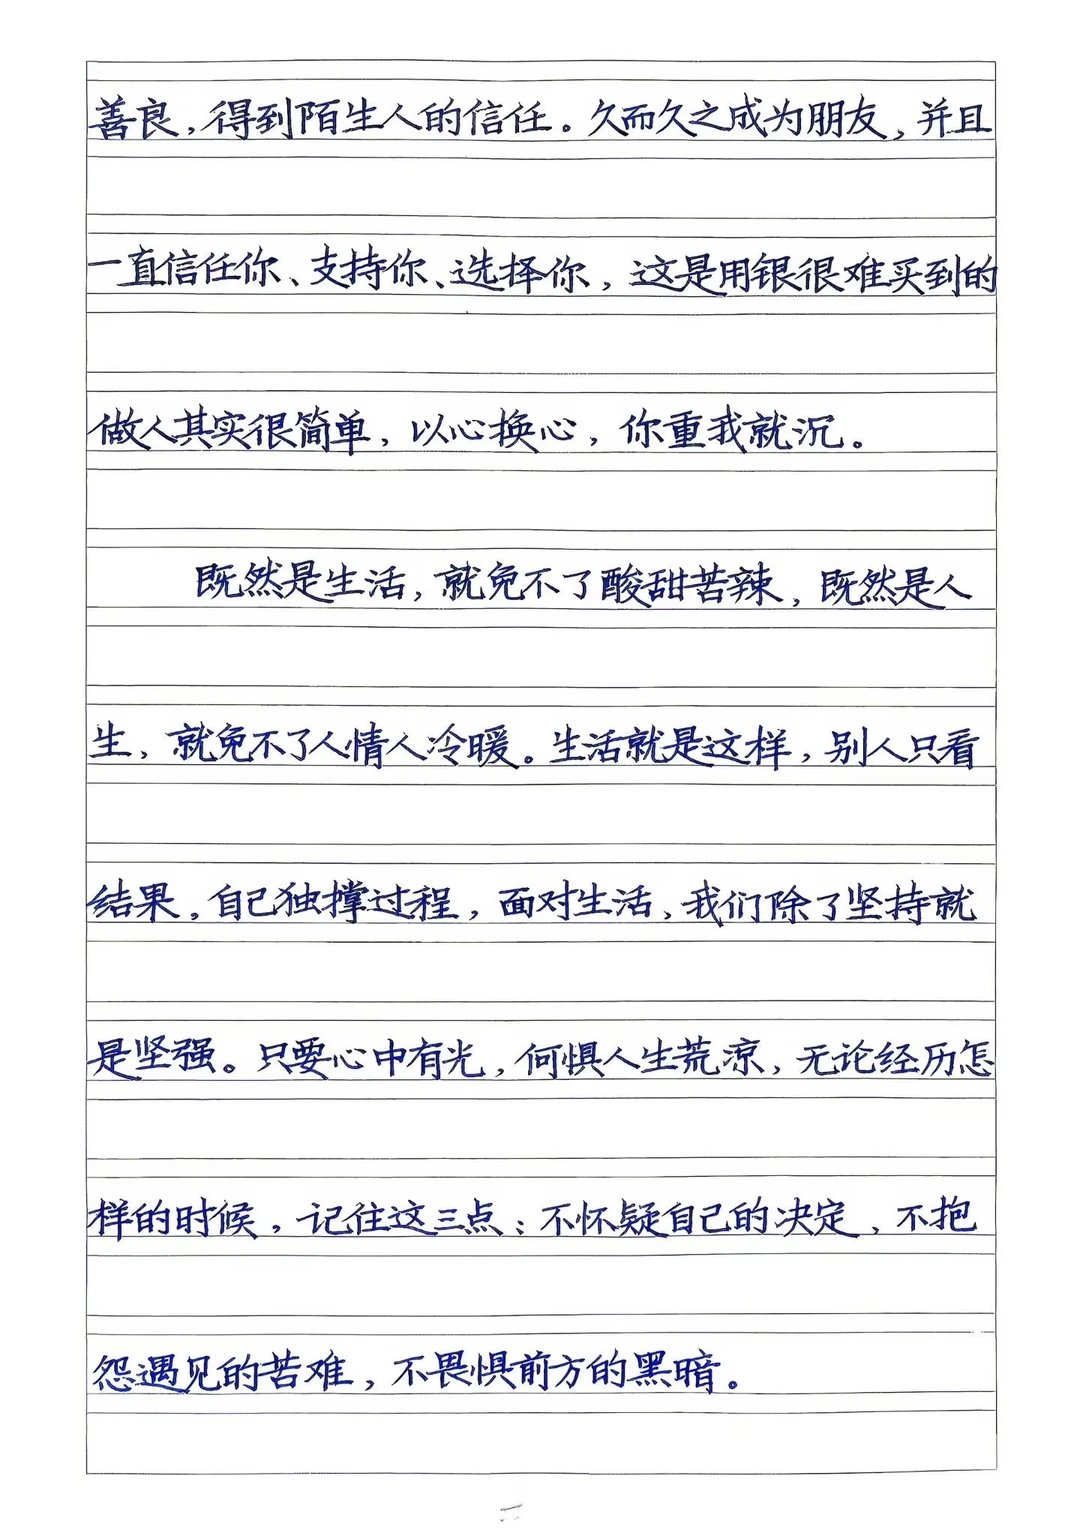 善良，得到陌生人的信任。久而久之成为朋友，并且
一直信任你、支持你、选择你，这是用银很难买到的
做人其实很简单，以心换心，你重我就沉。
既然是生活，就免不了酸甜苦辣，既然是人
生，就免不了人情人冷暖。生活就是这样，别人只看
结果，自己独撑过程，面对生活，我们除了坚持就
是坚强。只要心中有光，何惧人生荒凉，无论经历怎
样的时候，记住这三点：不怀疑自己的决定，不抱
怨遇见的苦难，不畏惧前方的黑暗。